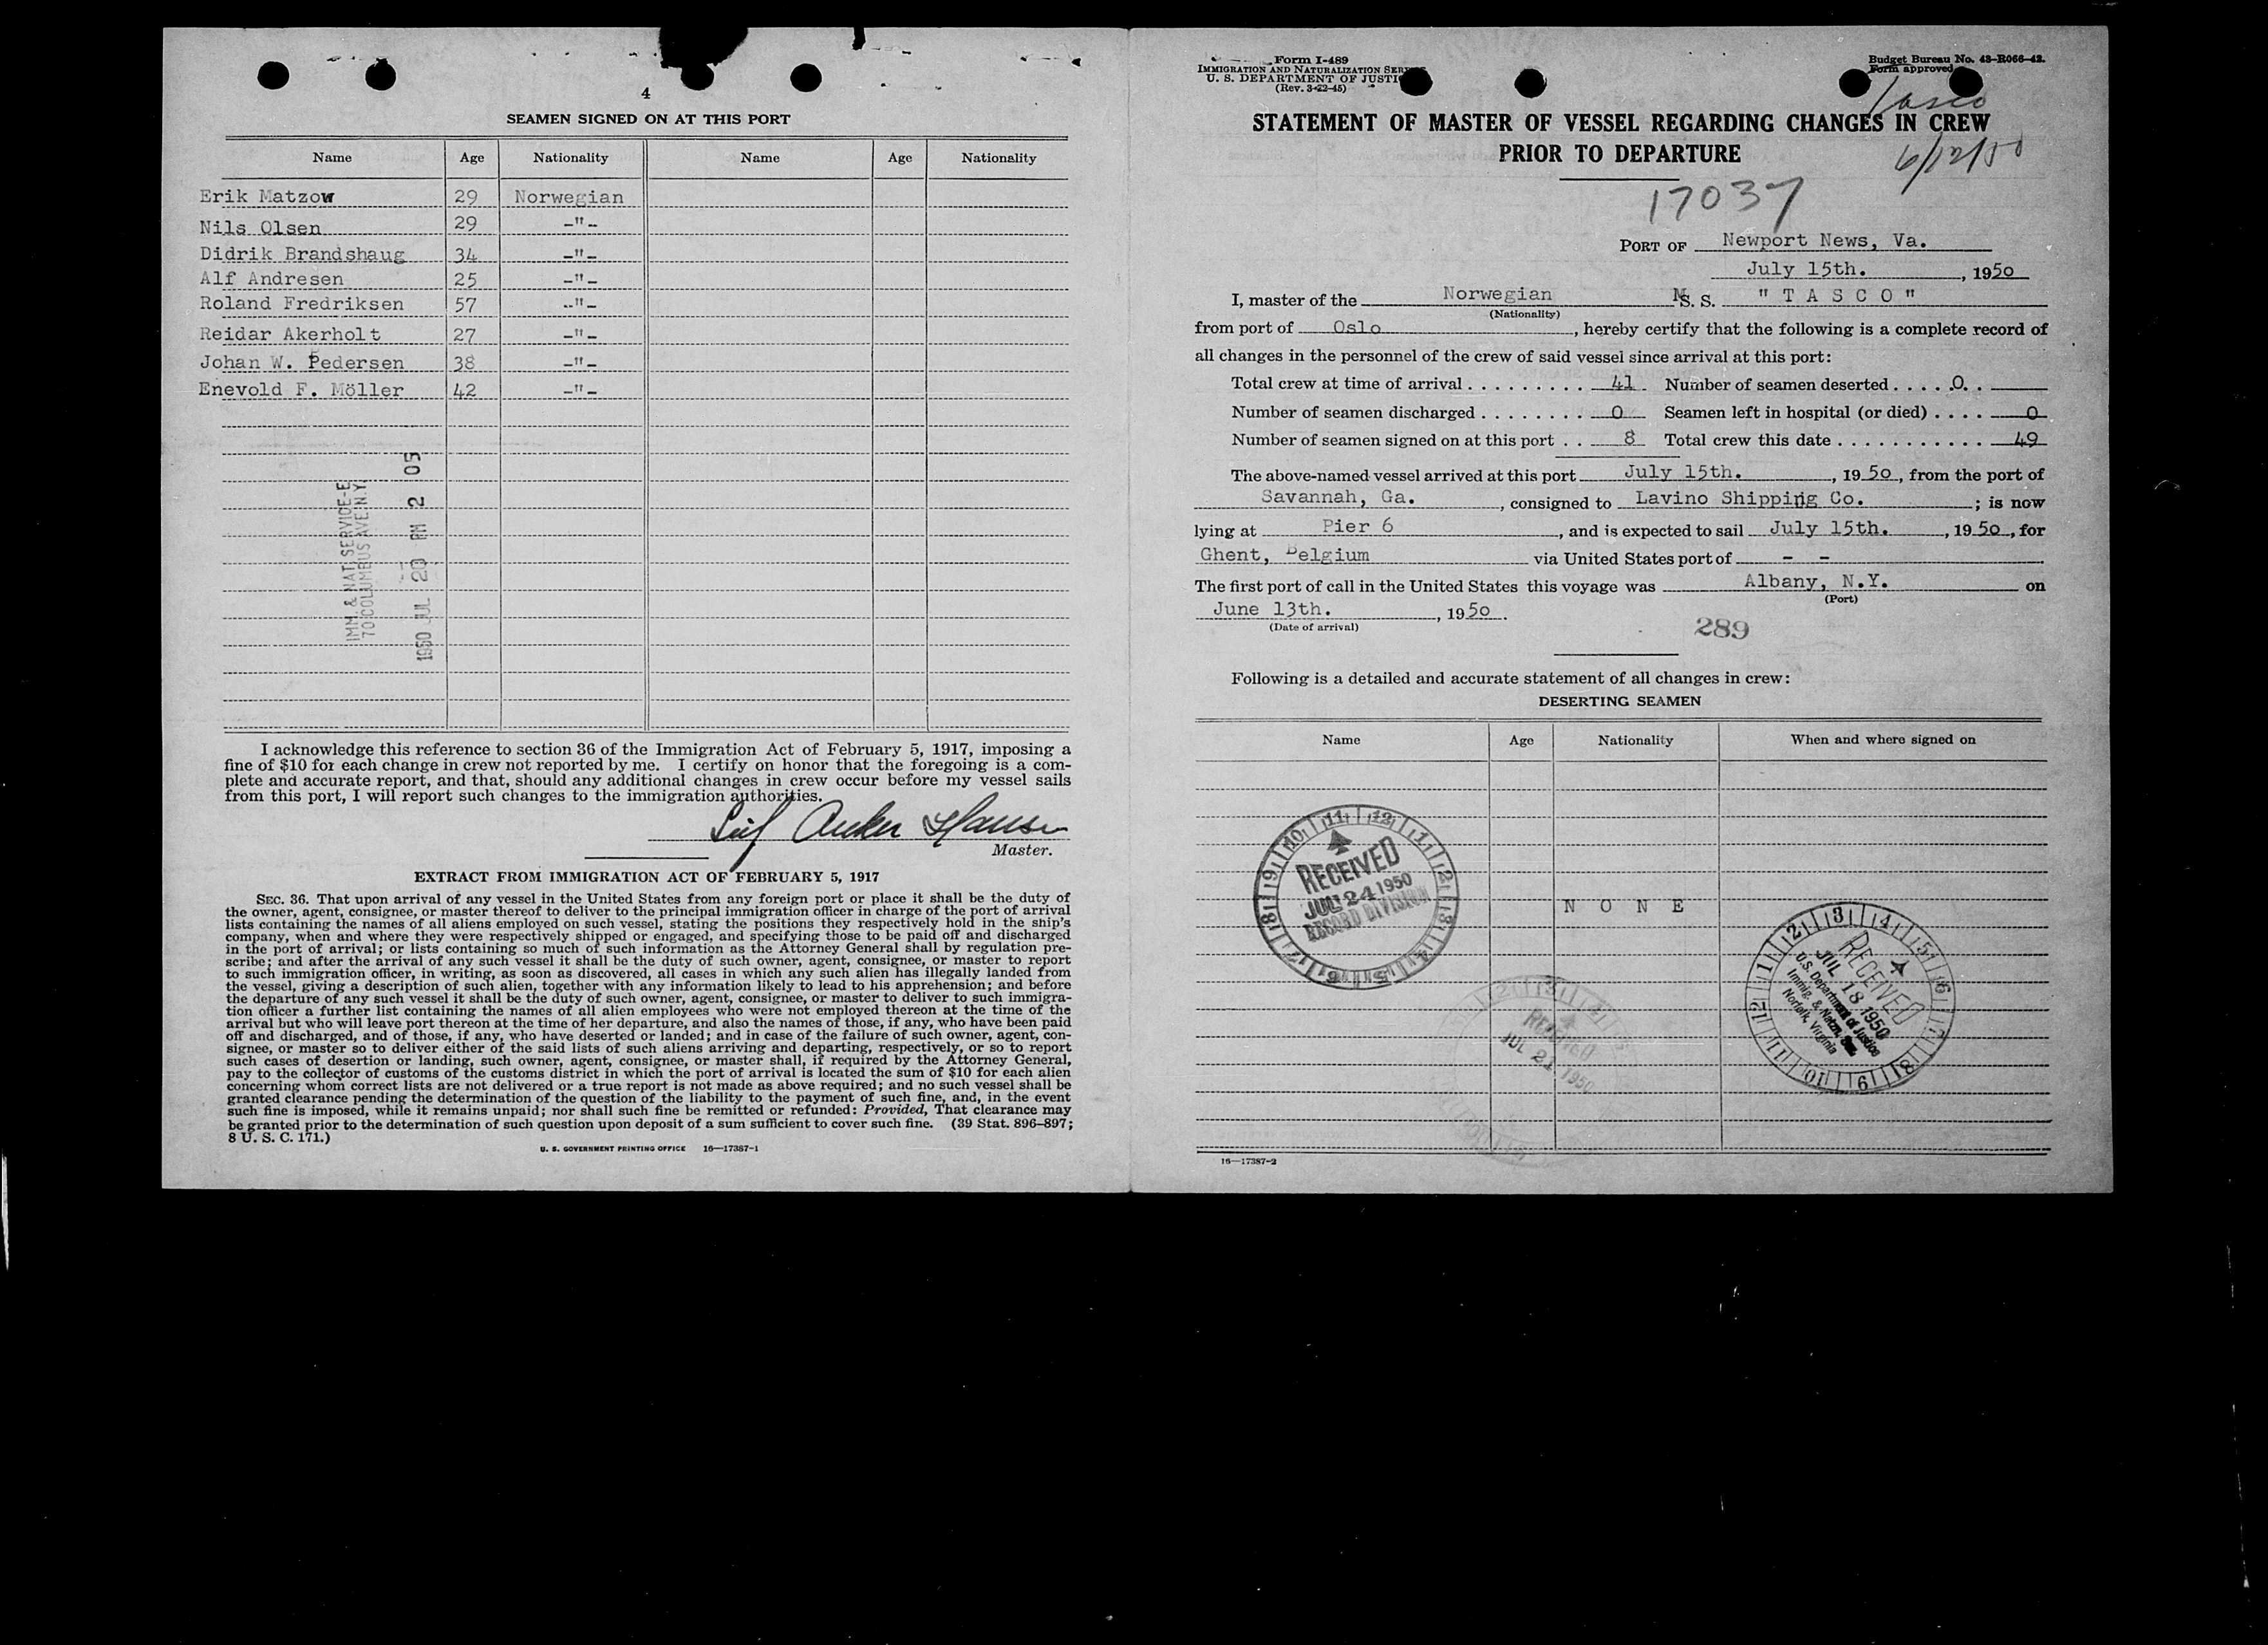 4
SEAMEN SIGNED ON AT THIS PORT
Name Age Nationality Name Age Nationality
Erik Matzow 29 Norwegian
Nils Olsen 29 -"-
Didrik Brandshaug 34 -"-
Alf Andresen 25 -"-
Roland Fredriksen 57 -"-
Reidar Akerholt 27 -"-
Johan W. Pedersen 38 -"-
Enevold F. Möller 42 -"-
IMM. & NAT. SERVICE-E
70 COLUMBUS AVE. N.Y.
1950 JUL 20 PM 2 05
I acknowledge this reference to section 36 of the Immigration Act of February 5, 1917, imposing a
fine of $10 for each change in crew not reported by me. I certify on honor that the foregoing is a com-
plete and accurate report, and that, should any additional changes in crew occur before my vessel sails
from this port, I will report such changes to the immigration authorities.
Leif Anker Hansen
Master.
EXTRACT FROM IMMIGRATION ACT OF FEBRUARY 5, 1917
SEC. 36. That upon arrival of any vessel in the United States from any foreign port or place it shall be the duty of
the owner, agent, consignee, or master thereof to deliver to the principal immigration officer in charge of the port of arrival
lists containing the names of all aliens employed on such vessel, stating the positions they respectively hold in the ship's
company, when and where they were respectively shipped or engaged, and specifying those to be paid off and discharged
in the port of arrival; or lists containing so much of such information as the Attorney General shall by regulation pre-
scribe; and after the arrival of any such vessel it shall be the duty of such owner, agent, consignee, or master to report
to such immigration officer, in writing, as soon as discovered, all cases in which any such alien has illegally landed from
the vessel, giving a description of such alien, together with any information likely to lead to his apprehension; and before
the departure of any such vessel it shall be the duty of such owner, agent, consignee, or master to deliver to such immigra-
tion officer a further list containing the names of all alien employees who were not employed thereon at the time of the
arrival but who will leave port thereon at the time of her departure, and also the names of those, if any, who have been paid
off and discharged, and of those, if any, who have deserted or landed; and in case of the failure of such owner, agent, con-
signee, or master so to deliver either of the said lists of such aliens arriving and departing, respectively, or so to report
such cases of desertion or landing, such owner, agent, consignee, or master shall, if required by the Attorney General,
pay to the collector of customs of the customs district in which the port of arrival is located the sum of $10 for each alien
concerning whom correct lists are not delivered or a true report is not made as above required; and no such vessel shall be
granted clearance pending the determination of the question of the liability to the payment of such fine, and, in the event
such fine is imposed, while it remains unpaid; nor shall such fine be remitted or refunded: Provided, That clearance may
be granted prior to the determination of such question upon deposit of a sum sufficient to cover such fine. (39 Stat. 896-897;
8 U. S. C. 171.)
U. S. GOVERNMENT PRINTING OFFICE 16—17387-1
Form I-489
IMMIGRATION AND NATURALIZATION SER
U. S. DEPARTMENT OF JUSTI
(Rev. 3-22-45)
Budget Bureau No. 43-R066-42.
Form approved
Tasco
STATEMENT OF MASTER OF VESSEL REGARDING CHANGES IN CREW
PRIOR TO DEPARTURE
6/12/50
17037
PORT OF Newport News, Va.
July 15th. , 1950
I, master of the Norwegian M S. S. " T A S C O "
(Nationality)
from port of Oslo , hereby certify that the following is a complete record of
all changes in the personnel of the crew of said vessel since arrival at this port:
Total crew at time of arrival . . . . . . . . . 41 Number of seamen deserted . . . . 0 . .
Number of seamen discharged . . . . . . . . 0 Seamen left in hospital (or died) . . . . 0
Number of seamen signed on at this port . . 8 Total crew this date . . . . . . . . . . . 49
The above-named vessel arrived at this port July 15th. , 1950 , from the port of
Savannah, Ga. , consigned to Lavino Shipping Co. ; is now
lying at Pier 6 , and is expected to sail July 15th. , 1950 , for
Ghent, Belgium via United States port of - -
The first port of call in the United States this voyage was Albany, N.Y. on
(Port)
June 13th. , 1950 .
(Date of arrival)
289
Following is a detailed and accurate statement of all changes in crew:
DESERTING SEAMEN
Name Age Nationality When and where signed on
N O N E
11 12 1 2 3 4 5 6 7 8 9 10
RECEIVED
JUL 24 1950
RECORD DIVISION
RECEIVED
JUL 21 1950
3 4 5 6 7 8 9 10 11 12 1 2
RECEIVED
JUL 18 1950
U.S. Department of Justice
Immig. & Natzn. Ser.
Norfolk, Virginia
16—17387-2